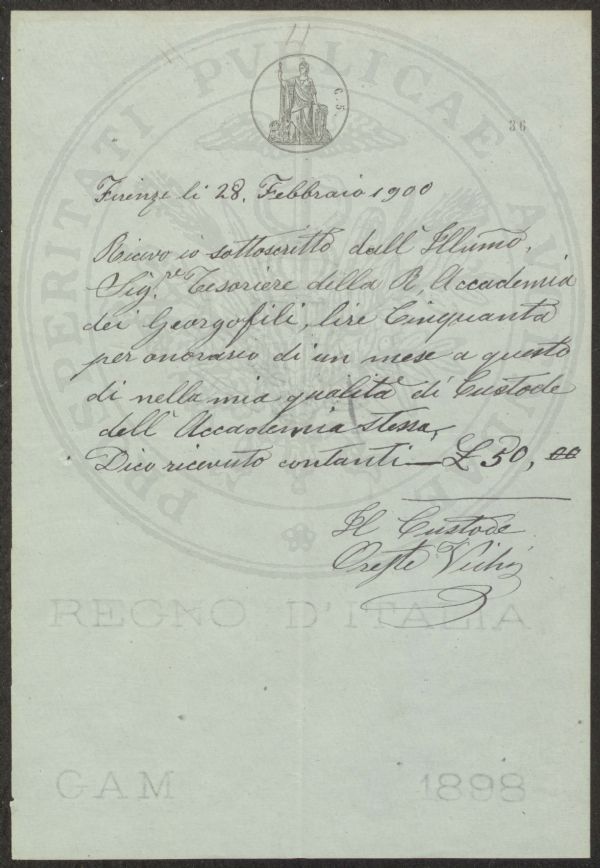 11
C. 5.
36
PROSPERITATI PVBLICAE AVGENDAE
Firenze li 28. Febbraio 1900
Ricevo io sottoscritto dall' Illumo,
Sig.re Tesoriere della R. Accademia
dei Georgofili, lire Cinquanta
per onorario di un mese a questo
di nella mia qualità di Custode
dell' Accademia stessa,
Dico ricevuto contanti — £ 50, 00
Il Custode
Oreste
REGNO D'ITALIA
GAM 1898